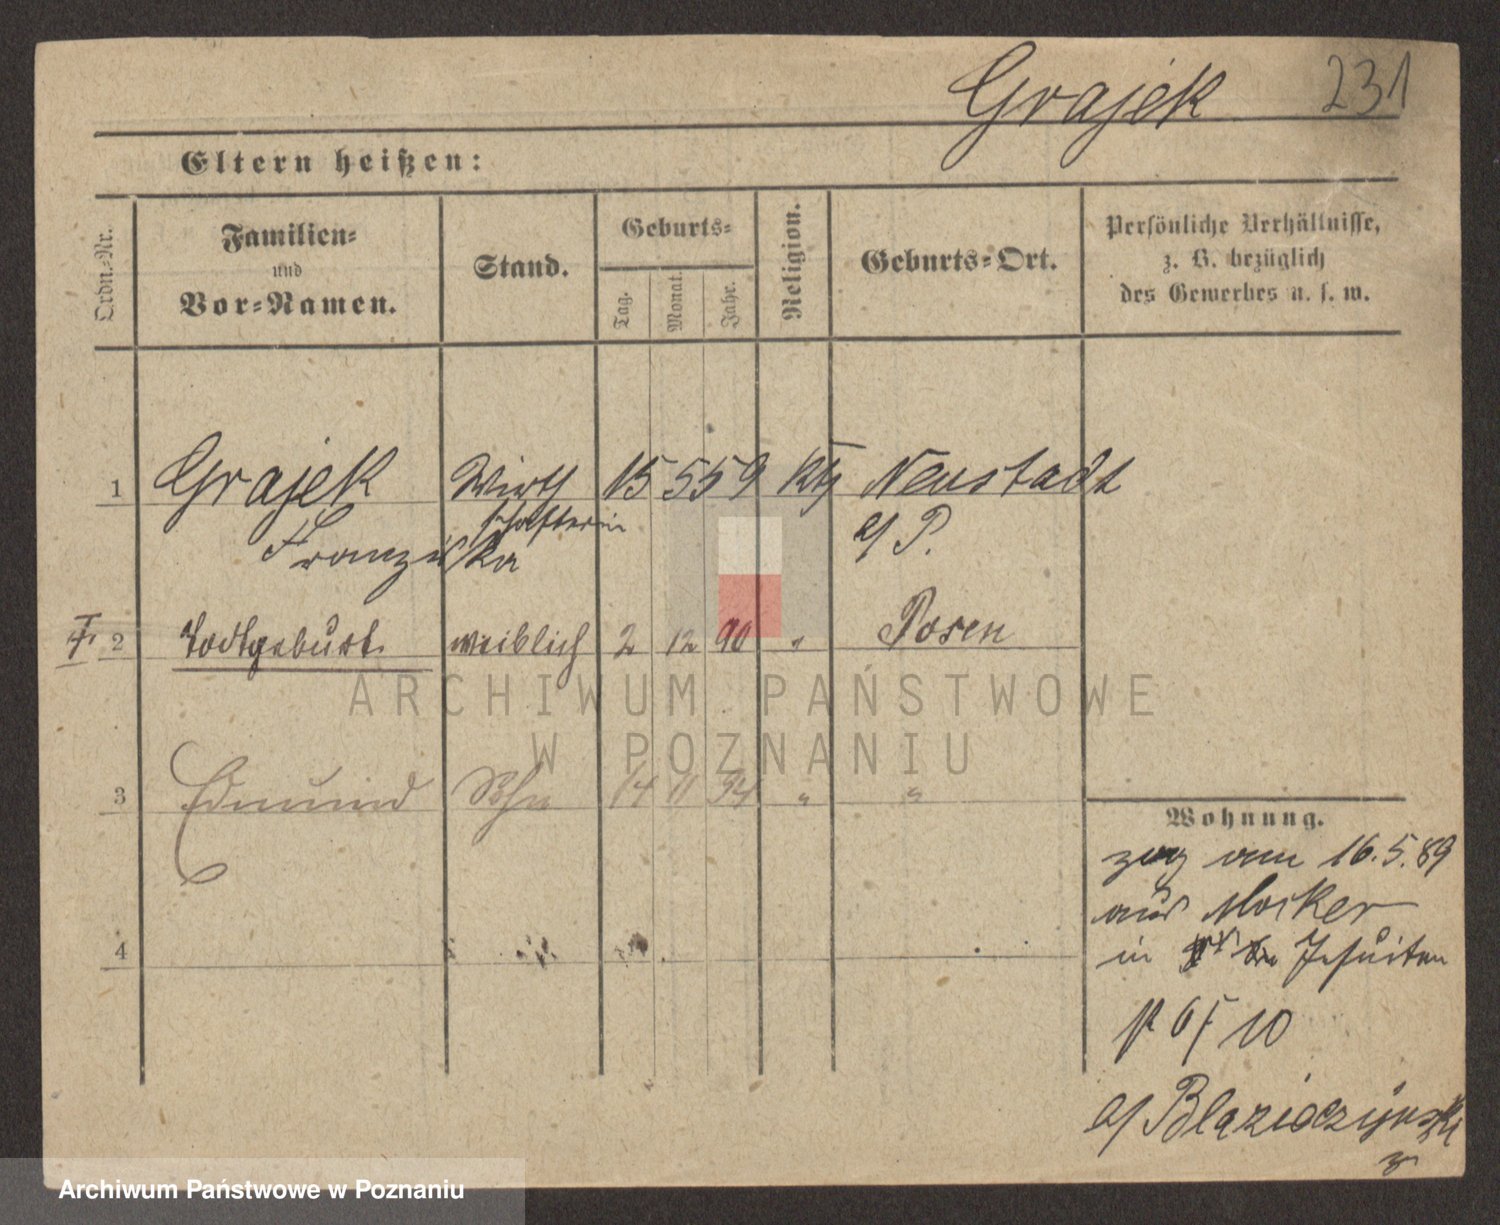 Grajek 231
Eltern heißen:
Ordn.-Nr.
Familien-
und
Vor-Namen.
Stand.
Geburts-
Tag.
Monat.
Jahr.
Religion.
Geburts-Ort.
Persönliche Verhältnisse,
z. B. bezüglich
des Gewerbes u. s. w.
1 Grajek Wirth 15 5 59 kth Neustadt
schafterin
Franziska a/ P.
2 Todtgeburt weiblich 2 12 90 " Posen
ARCHIWUM PAŃSTWOWE
W POZNANIU
3 Edmund Sohn 14 11 94 " "
Wohnung.
zog am 16.5.89
aus Mocker
4
in Jesuiten
10
Archiwum Państwowe w Poznaniu